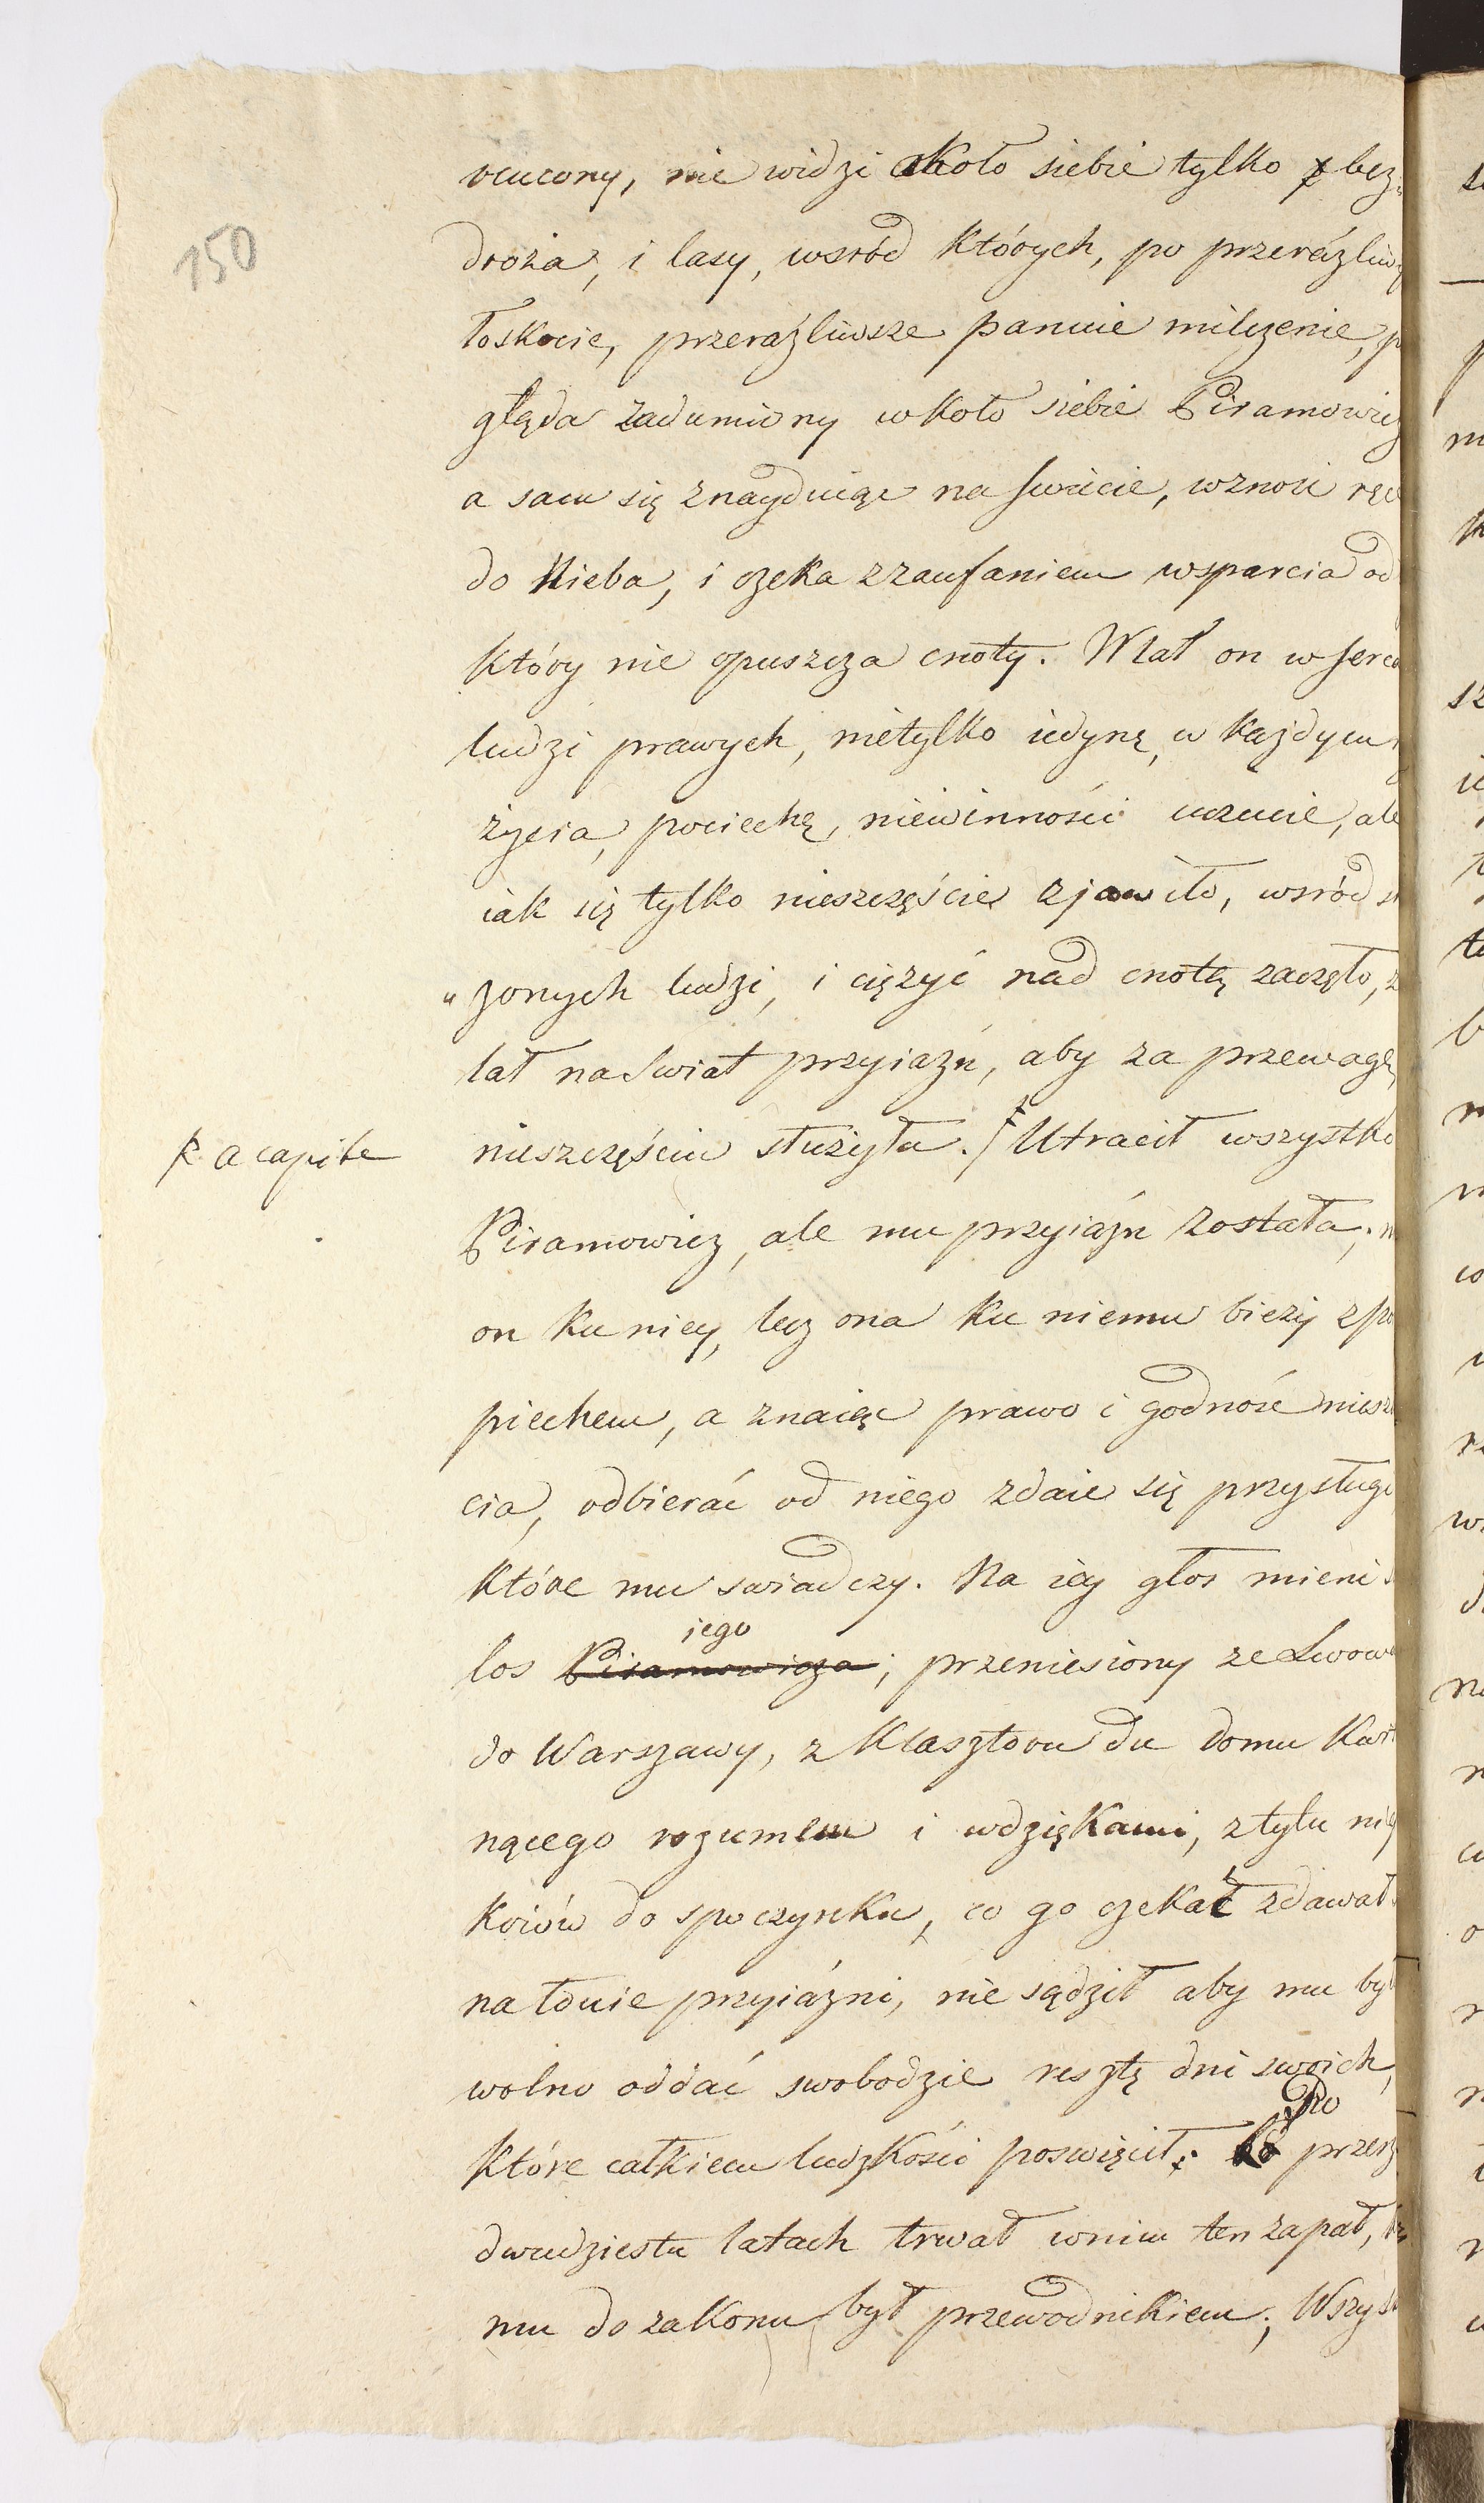 150
ocucony, nie widzi około siebie tylko bez=
droża, i lasy, wsród których, po przeráźliwy
łoskocie, przeraźliwsze panuie milczenie,
gląda zadumiony wkoło siebie Piramowicz
a sam się znayduiąc na swiecie, wznosi ręce
do Nieba, i czeka z zaufaniem wsparcia od
który nie opuszcza cnoty. Wlał on w serca
ludzi prawych, nietylko iedynę, w każdym
życia, pociechę, niewinności uczucie, ale
iak się tylko nieszczęście zjawiło, wsród
"zonych ludzi, i ciężyć nad cnotą zaczęło, z
łał na swiat przyiaźń, aby za przewagę,
nieszczęściu służyła. / Utracił wszystko
a capite
Piramowicz, ale mu przyiaźń została;
on ku niey, lecz ona ku niemu bieży z po
piechem, a znaiąc prawo i godność niesz
cia, odbierać od niego zdaie się przysługi
które mu swiadczy. Na iey głos mieni
los Piramowicza; przeniesiony ze Lwowa
jego
do Warszawy, z Klasztoru du domu Kwit
nącego rozumem i wdziękami, z tylu nię
koiów do spoczynku, co go czekać zdawał
na łonie przyiáźni, nie sądził aby mu był
wolno oddać swobodzie resztę dni swoich,
Po
które całkiem ludzkości poswięcił. przesz
dwudziestu latach trwał w nim ten zapał,
mu do zakonu był przewodnikiem; Wszyst